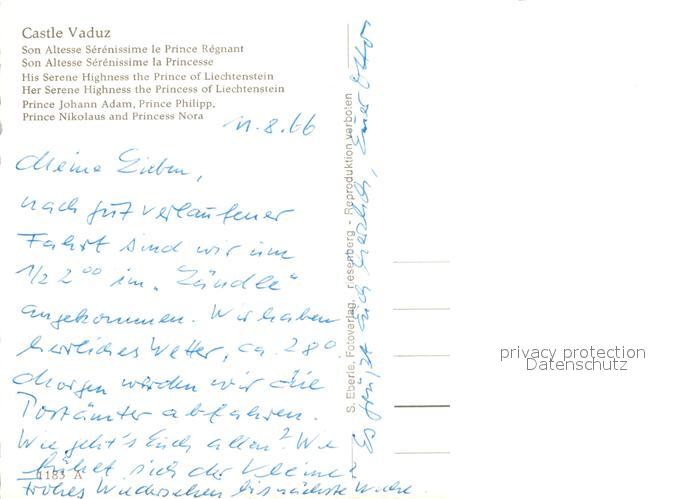 Castle Vaduz
Son Altesse Sérénissime le Prince Régnant
Son Altesse Sérénissime la Princesse
His Serene Highness the Prince of Liechtenstein
Her Serene Highness the Princess of Liechtenstein
Prince Johann Adam, Prince Philipp,
Prince Nikolaus and Princess Nora
11.8.66
Meine Lieben,
nach gut verlaufener
Fahrt sind wir um
1/2 2⁰⁰ im „Ländle“
angekommen. Wir haben
herrliches Wetter, ca. 28⁰
Morgen werden wir die
Postämter abfahren.
Wie geht's Euch allen? Wie
fühlt sich der Kleine?
Frohes Wiedersehen bis nächste Woche.
Es grüßt Euch herzlich, Euer Otto
1183 A
S. Eberle, Fotoverlag, Triesenberg - Reproduktion verboten
privacy protection
Datenschutz